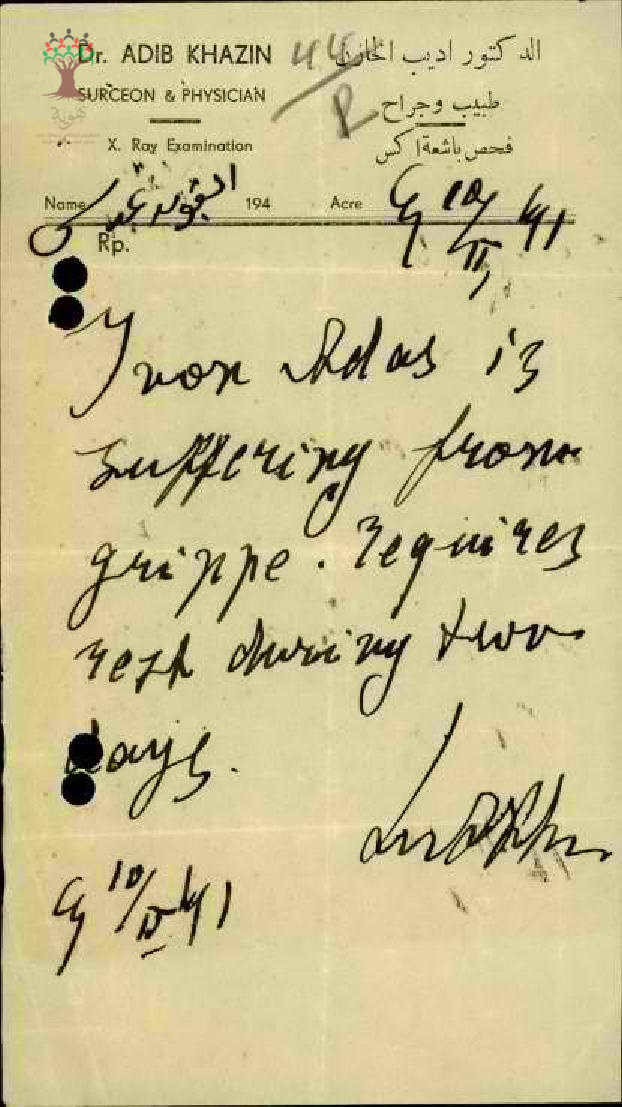 Dr. ADIB KHAZIN
الدكتور اديب الخازن
SURGEON & PHYSICIAN
طبيب وجراح
X. Ray Examination
فحص باشعة اكس
هوية
44
R
Name 194 Acre 10/II 41
Rp.
Ivon Adas is
suffering from
grippe. requires
rest during two
days.
10/II 41